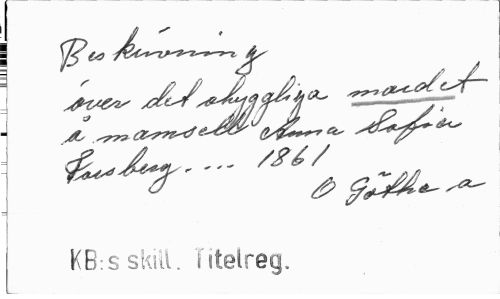 Beskrivning
över det ohyggliga mordet
å mamsell Anna Sofia
Forsberg.... 1861
O Göthe a
KB:s skill. Titelreg.